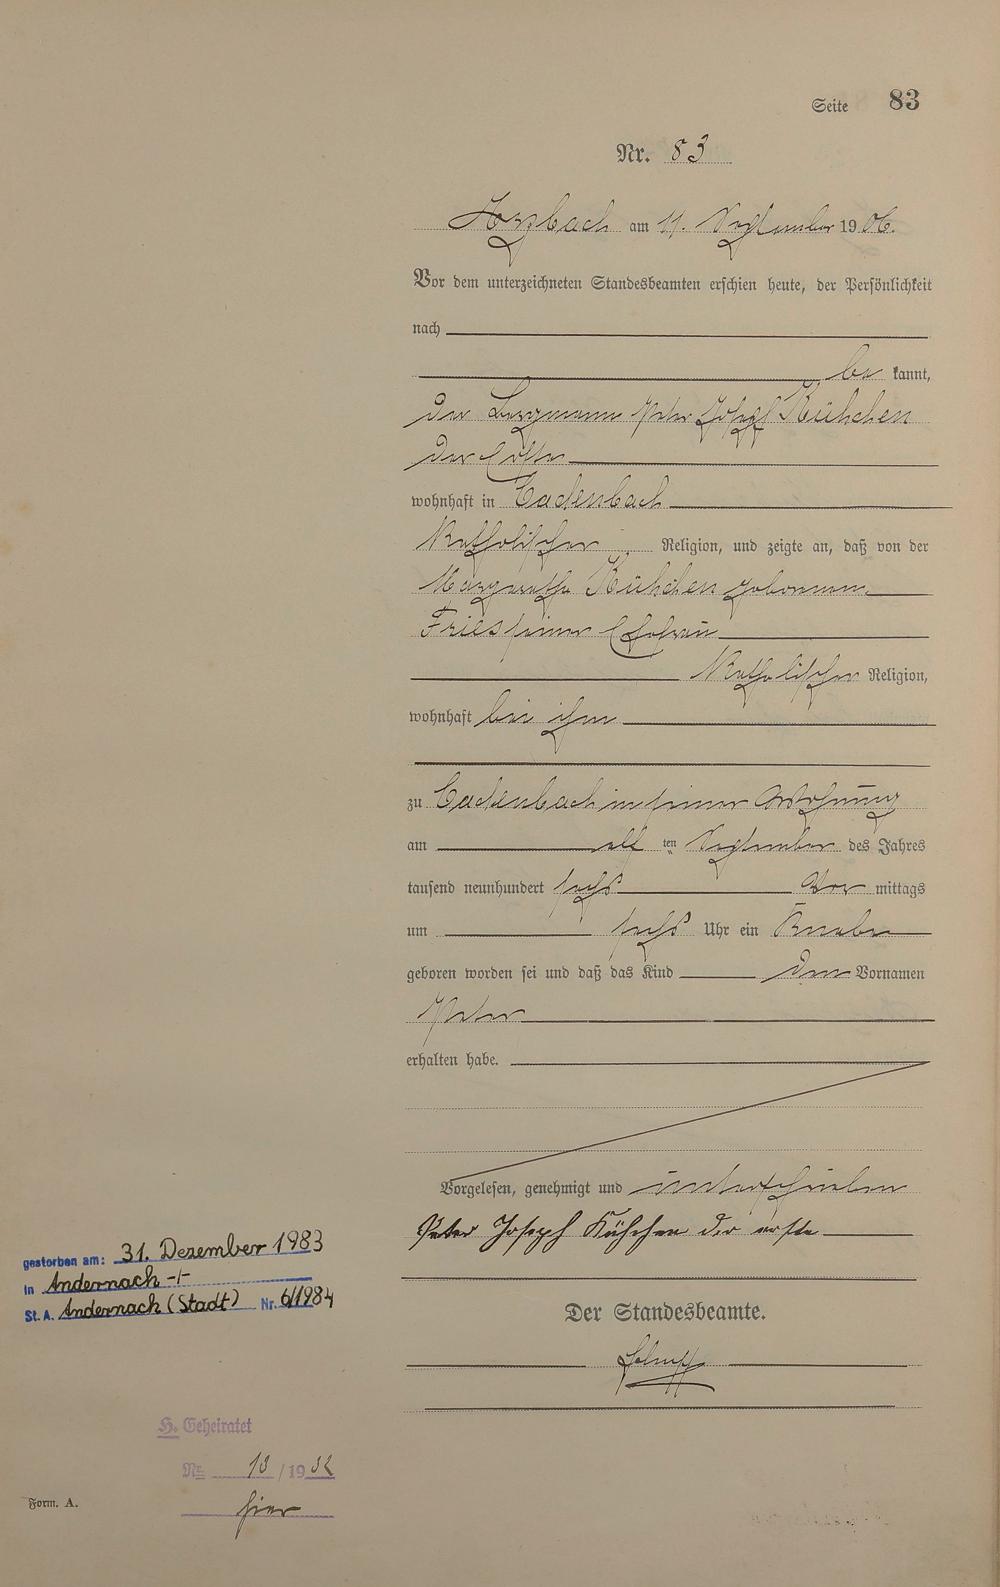 Seite 83
Nr. 83
Arzbach am 11. September 1906.
Vor dem unterzeichneten Standesbeamten erschien heute, der Persönlichkeit
nach
be kannt,
der Bergmann Peter Josef Kühchen
der Erste
wohnhaft in Cadenbach
Katholischer Religion, und zeigte an, daß von der
Margaretha Kühchen geborenen
Fries seiner Ehefrau
Katholischer Religion,
wohnhaft bei ihm
zu Cadenbach in seiner Wohnung
am elf ten September des Jahres
tausend neunhundert sechs Vor mittags
um sechs Uhr ein Knabe
geboren worden sei und daß das Kind den Vornamen
Peter
erhalten habe.
Vorgelesen, genehmigt und unterschrieben
Peter Joseph Kühchen der erste
Der Standesbeamte.
gestorben am: 31. Dezember 1983
in Andernach -/-
St. A. Andernach (Stadt) Nr. 6/1984
H. Geheiratet
Nr. 13 / 1932
hier
Form. A.